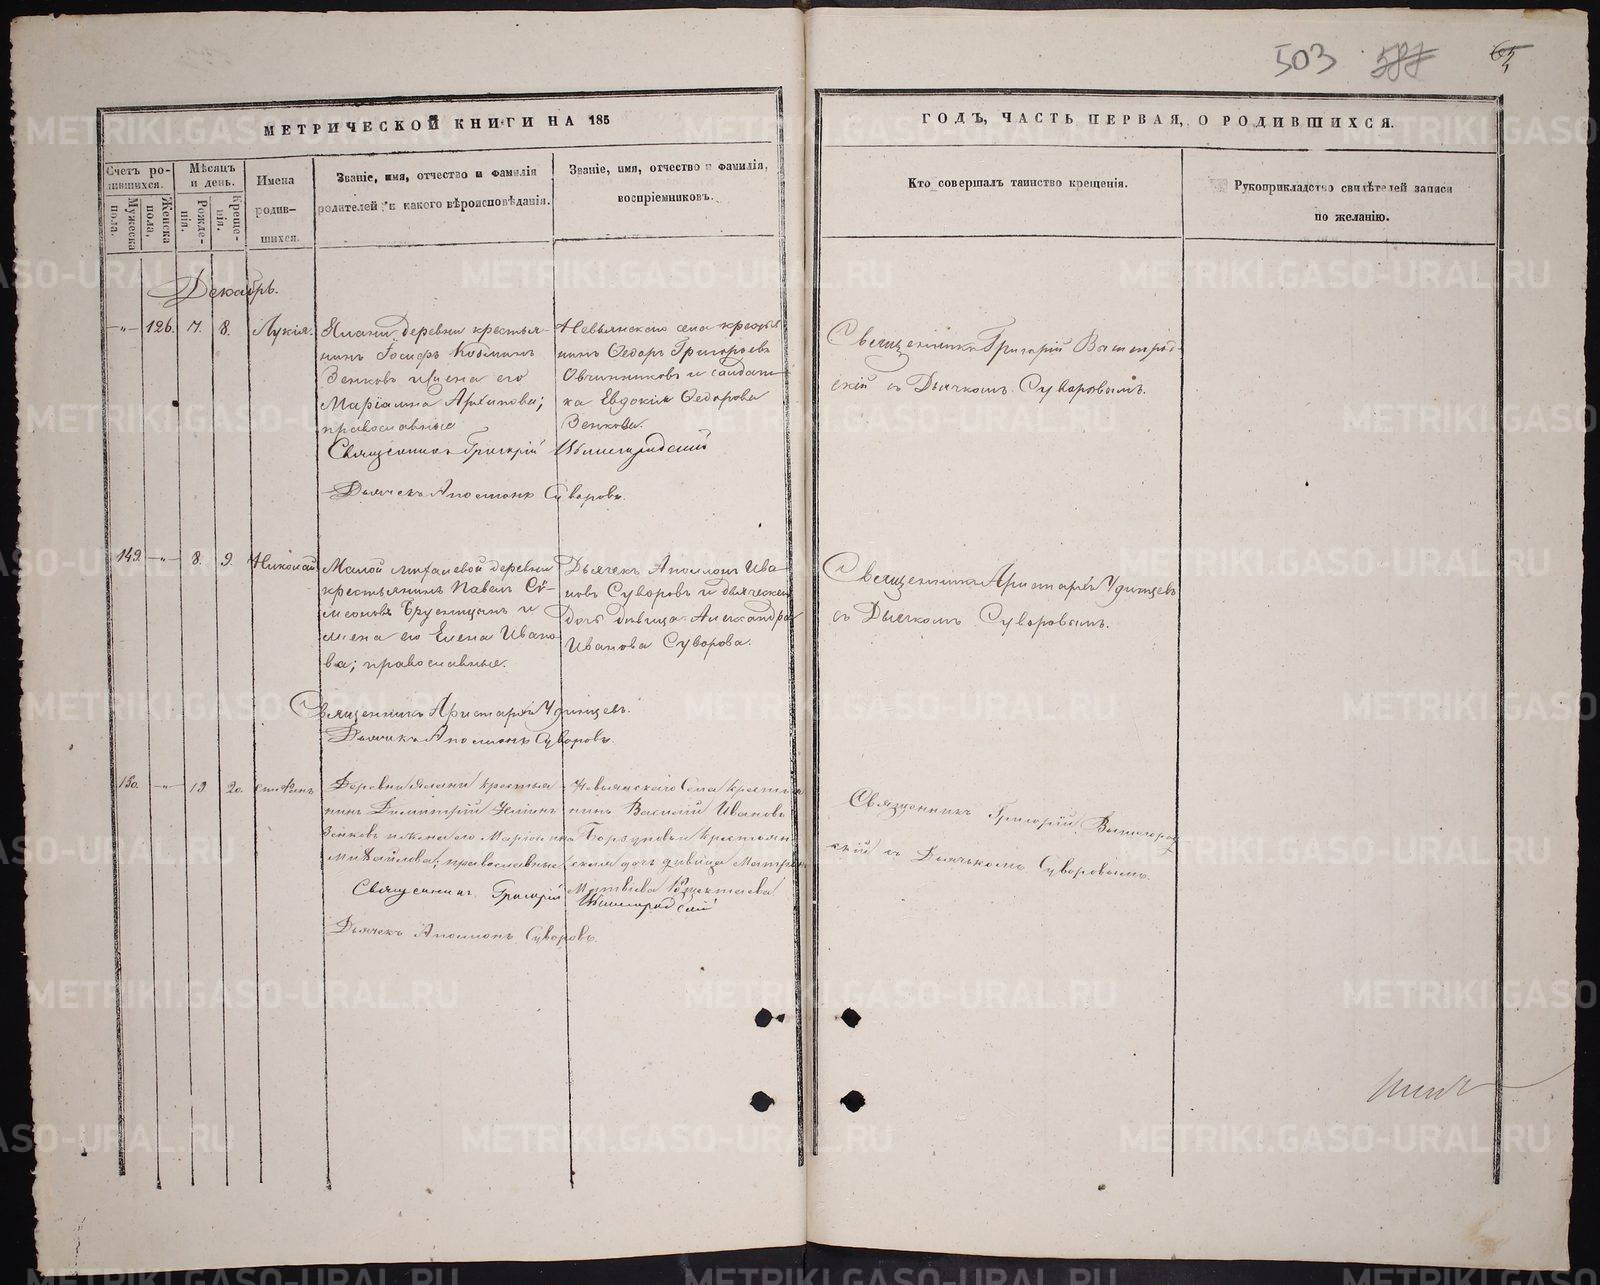 503 587 65
МЕТРИЧЕСКОЙ КНИГИ НА 185
ГОДЪ, ЧАСТЬ ПЕРВАЯ, О РОДИВШИХСЯ.
Счетъ родившихся.
Мужеска пола.
Женска пола.
Мѣсяцъ и день.
Рожденія.
Крещенія.
Имена родившихся.
Званіе, имя, отчество и фамилія
родителей, и какого вѣроисповѣданія.
Званіе, имя, отчество и фамилія,
воспріемниковъ.
Кто совершалъ таинство крещенія.
Рукоприкладство свидѣтелей записи
по желанію.
Декабрь.
-„- 126. 7. 8. Лукія.
Ялани деревни крестья-
нинъ Іосифъ Козминъ
Зенковъ и жена его
Маріамна Архипова;
православные
Невьянскаго села кресть
нинъ Ѳедоръ Григорьевъ
Овчинниковъ и солдат-
ка Евдокія Ѳедорова
Зенкова.
Священникъ Григорій Вышегрод-
скій съ Дьячкомъ Суворовымъ.
Священникъ Григорій Вышегородскій
Дьячекъ Аполлонъ Суворовъ.
149. -„- 8. 9. Николай
Малой деревни
крестьянинъ Павелъ Си-
меоновъ Брусницынъ и
жена его Елена Ивано
ва; православные.
Дьячекъ Аполлонъ Ива
новъ Суворовъ и дьяческая
дочь дѣвица Александра
Иванова Суворова.
Священникъ Аристархъ Удинцевъ
съ Дьячкомъ Суворовымъ.
Священникъ Аристархъ Удинцевъ.
Дьячекъ Аполлонъ Суворовъ.
150. -„- 19. 20. Стефанъ
Деревни Ялани крестья
нинъ Димитрій
Зенковъ и жена его Маріамна
Михайлова; православные
Невьянскаго Села Крестья
нинъ Василій Ивановъ
Порзуновъ и крестьян
ская дочь дѣвица Матрона
Матвѣева
Священникъ Григорій Вышегород
скій съ Дьячкомъ Суворовымъ.
Священникъ Григорій Вышегородскій
Дьячекъ Аполлонъ Суворовъ.
METRIKI.GASO-URAL.RU